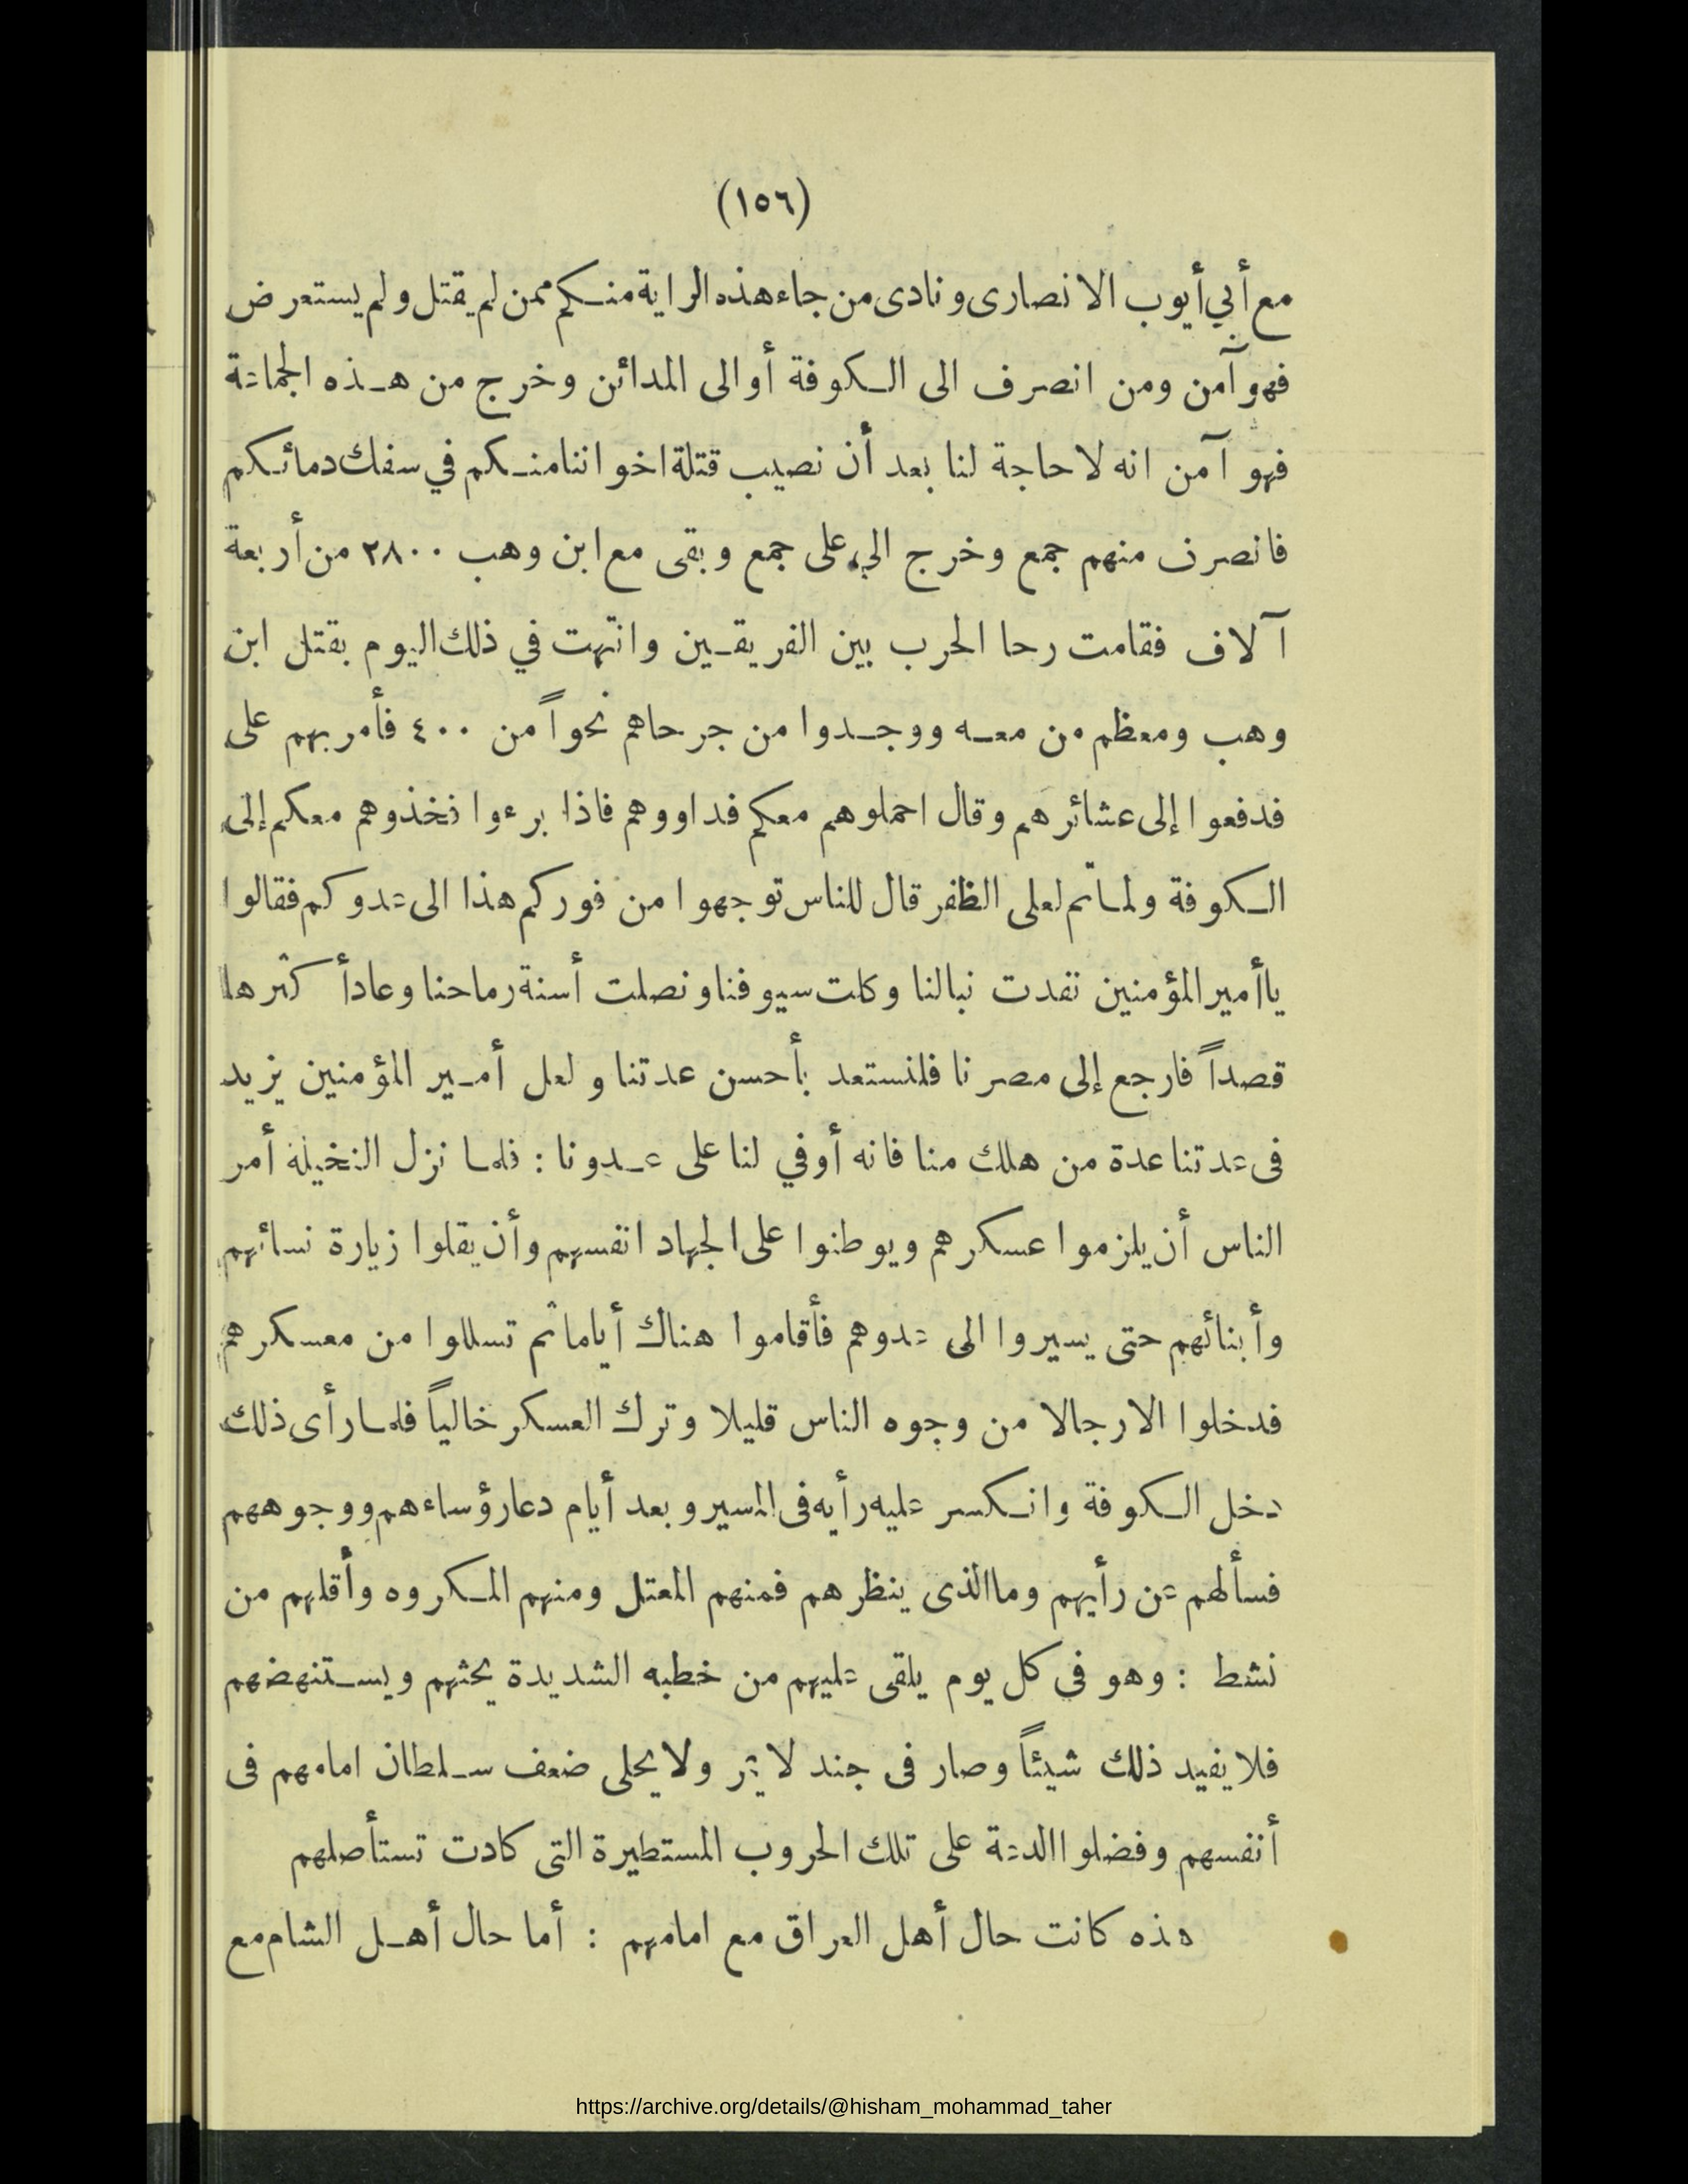 (١٥٦)
مع أبي أيوب الانصارى ونادى من جاء هذه الراية منكم ممن لم يقتل ولم يستعرض
فهو آمن ومن انصرف الى الكوفة أو الى المدائن وخرج من هذه الجماعة
فهو آمن انه لا حاجة لنا بعد أن نصيب قتلة اخواننا منكم في سفك دمائكم
فانصرف منهم جمع وخرج الى على جمع وبقى مع ابن وهب ٢٨٠٠ من أربعة
آلاف فقامت رحا الحرب بين الفريقين وانتهت في ذلك اليوم بقتل ابن
وهب ومعظم من معه ووجدوا من جرحاهم نحواً من ٤٠٠ فأمر بهم على
فدفعوا إلى عشائرهم وقال احملوهم معكم فداووهم فاذا برءوا فخذوهم معكم إلى
الكوفة ولما تم لعلى الظفر قال للناس توجهوا من فوركم هذا الى عدوكم فقالوا
ياأمير المؤمنين نفدت نبالنا وكلت سيوفنا ونصلت أسنة رماحنا وعاد أكثرها
قصداً فارجع إلى مصرنا فلنستعد بأحسن عدتنا ولعل أمير المؤمنين يزيد
فى عدتنا عدة من هلك منا فانه أوفي لنا على عدونا : فلما نزل النخيلة أمر
الناس أن يلزموا عسكرهم ويوطنوا على الجهاد انفسهم وأن يقلوا زيارة نسائهم
وأبنائهم حتى يسيروا الى عدوهم فأقاموا هناك أياما ثم تسللوا من معسكرهم
فدخلوا الا رجالا من وجوه الناس قليلا وترك العسكر خالياً فلما رأى ذلك
دخل الكوفة وانكسر عليه رأيه فى المسير وبعد أيام دعا رؤساءهم ووجوههم
فسألهم عن رأيهم وما الذى ينظرهم فمنهم المعتل ومنهم المكروه وأقلهم من
نشط : وهو فى كل يوم يلقى عليهم من خطبه الشديدة يحثهم ويستنهضهم
فلا يفيد ذلك شيئاً وصار فى جند لا يمر ولا يحلى ضعف سلطان امامهم فى
أنفسهم وفضلوا الدعة على تلك الحروب المستطيرة التى كادت تستأصلهم
هذه كانت حال أهل العراق مع امامهم : أما حال أهل الشام مع
https://archive.org/details/@hisham_mohammad_taher